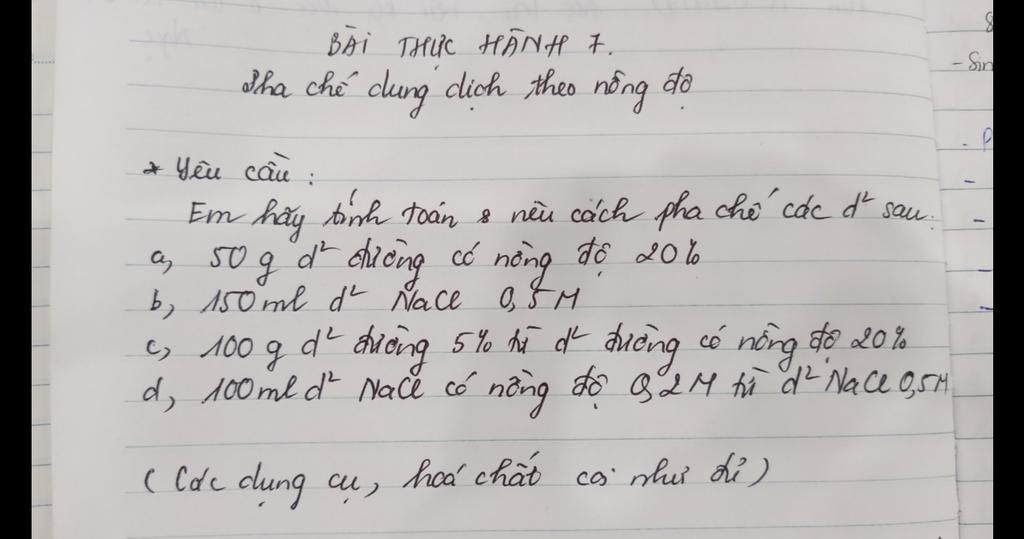 BÀI THỰC HÀNH 7.
Pha chế dung dịch theo nồng độ
* Yêu cầu :
Em hãy tính toán & nêu cách pha chế các d² sau.
a, 50 g d² đường có nồng độ 20%
b, 150ml d² NaCl 0,5M
c, 100 g d² đường 5% từ d² đường có nồng độ 20%
d, 100ml d² NaCl có nồng độ 0,2M từ d² NaCl 0,5M
( Các dụng cụ, hoá chất coi như đủ )
- Sin